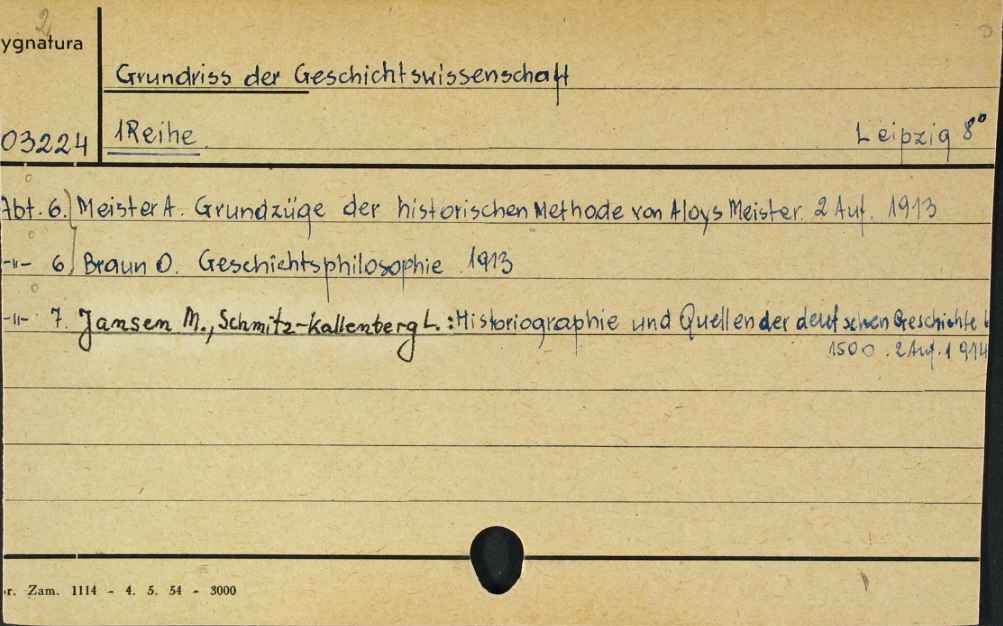 2
ygnatura
Grundriss der Geschichtswissenschaft
03224 1Reihe Leipzig 8°
Abt. 6. Meister A. Grundzüge der historischen Methode von Aloys Meister. 2 Auf. 1913
-"- 6. Braun O. Geschichtsphilosophie 1913
-"- 7. Jansen M., Schmitz-Kallenberg L.: Historiographie und Quellen der deutschen Geschichte b
1500. 2 Auf. 1914
r. Zam. 1114 - 4. 5. 54 - 3000